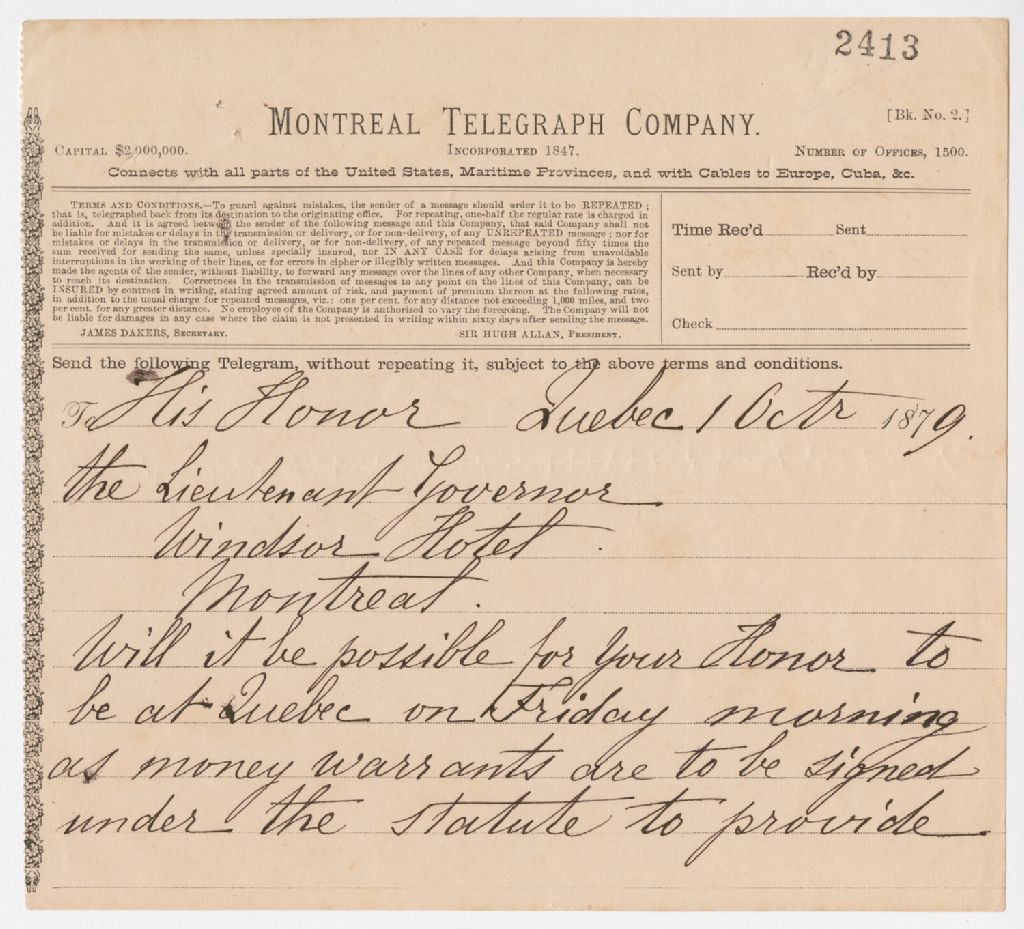 2413
MONTREAL TELEGRAPH COMPANY.
[Bk. No. 2.]
CAPITAL $2,000,000.
INCORPORATED 1847.
NUMBER OF OFFICES, 1500.
Connects with all parts of the United States, Maritime Provinces, and with Cables to Europe, Cuba, &c.
TERMS AND CONDITIONS.—To guard against mistakes, the sender of a message should order it to be REPEATED;
that is, telegraphed back from its destination to the originating office. For repeating, one-half the regular rate is charged in
addition. And it is agreed between the sender of the following message and this Company, that said Company shall not
be liable for mistakes or delays in the transmission or delivery, or for non-delivery, of any UNREPEATED message; nor for
mistakes or delays in the transmission or delivery, or for non-delivery, of any repeated message beyond fifty times the
sum received for sending the same, unless specially insured, nor IN ANY CASE for delays arising from unavoidable
interruptions in the working of their lines, or for errors in cipher or illegibly written messages. And this Company is hereby
made the agents of the sender, without liability, to forward any message over the lines of any other Company, when necessary
to reach its destination. Correctness in the transmission of messages to any point on the lines of this Company, can be
INSURED by contract in writing, stating agreed amount of risk, and payment of premium thereon at the following rates,
in addition to the usual charge for repeated messages, viz.: one per cent. for any distance not exceeding 1,000 miles, and two
per cent. for any greater distance. No employee of the Company is authorized to vary the foregoing. The Company will not
be liable for damages in any case where the claim is not presented in writing within sixty days after sending the message.
JAMES DAKERS, SECRETARY.
SIR HUGH ALLAN, PRESIDENT.
Time Rec'd Sent
Sent by Rec'd by
Check
Send the following Telegram, without repeating it, subject to the above terms and conditions.
To His Honor Quebec 1 Octr 1879.
the Lieutenant Governor
Windsor Hotel
Montreal.
Will it be possible for Your Honor to
be at Quebec on Friday morning
as money warrants are to be signed
under the statute to provide